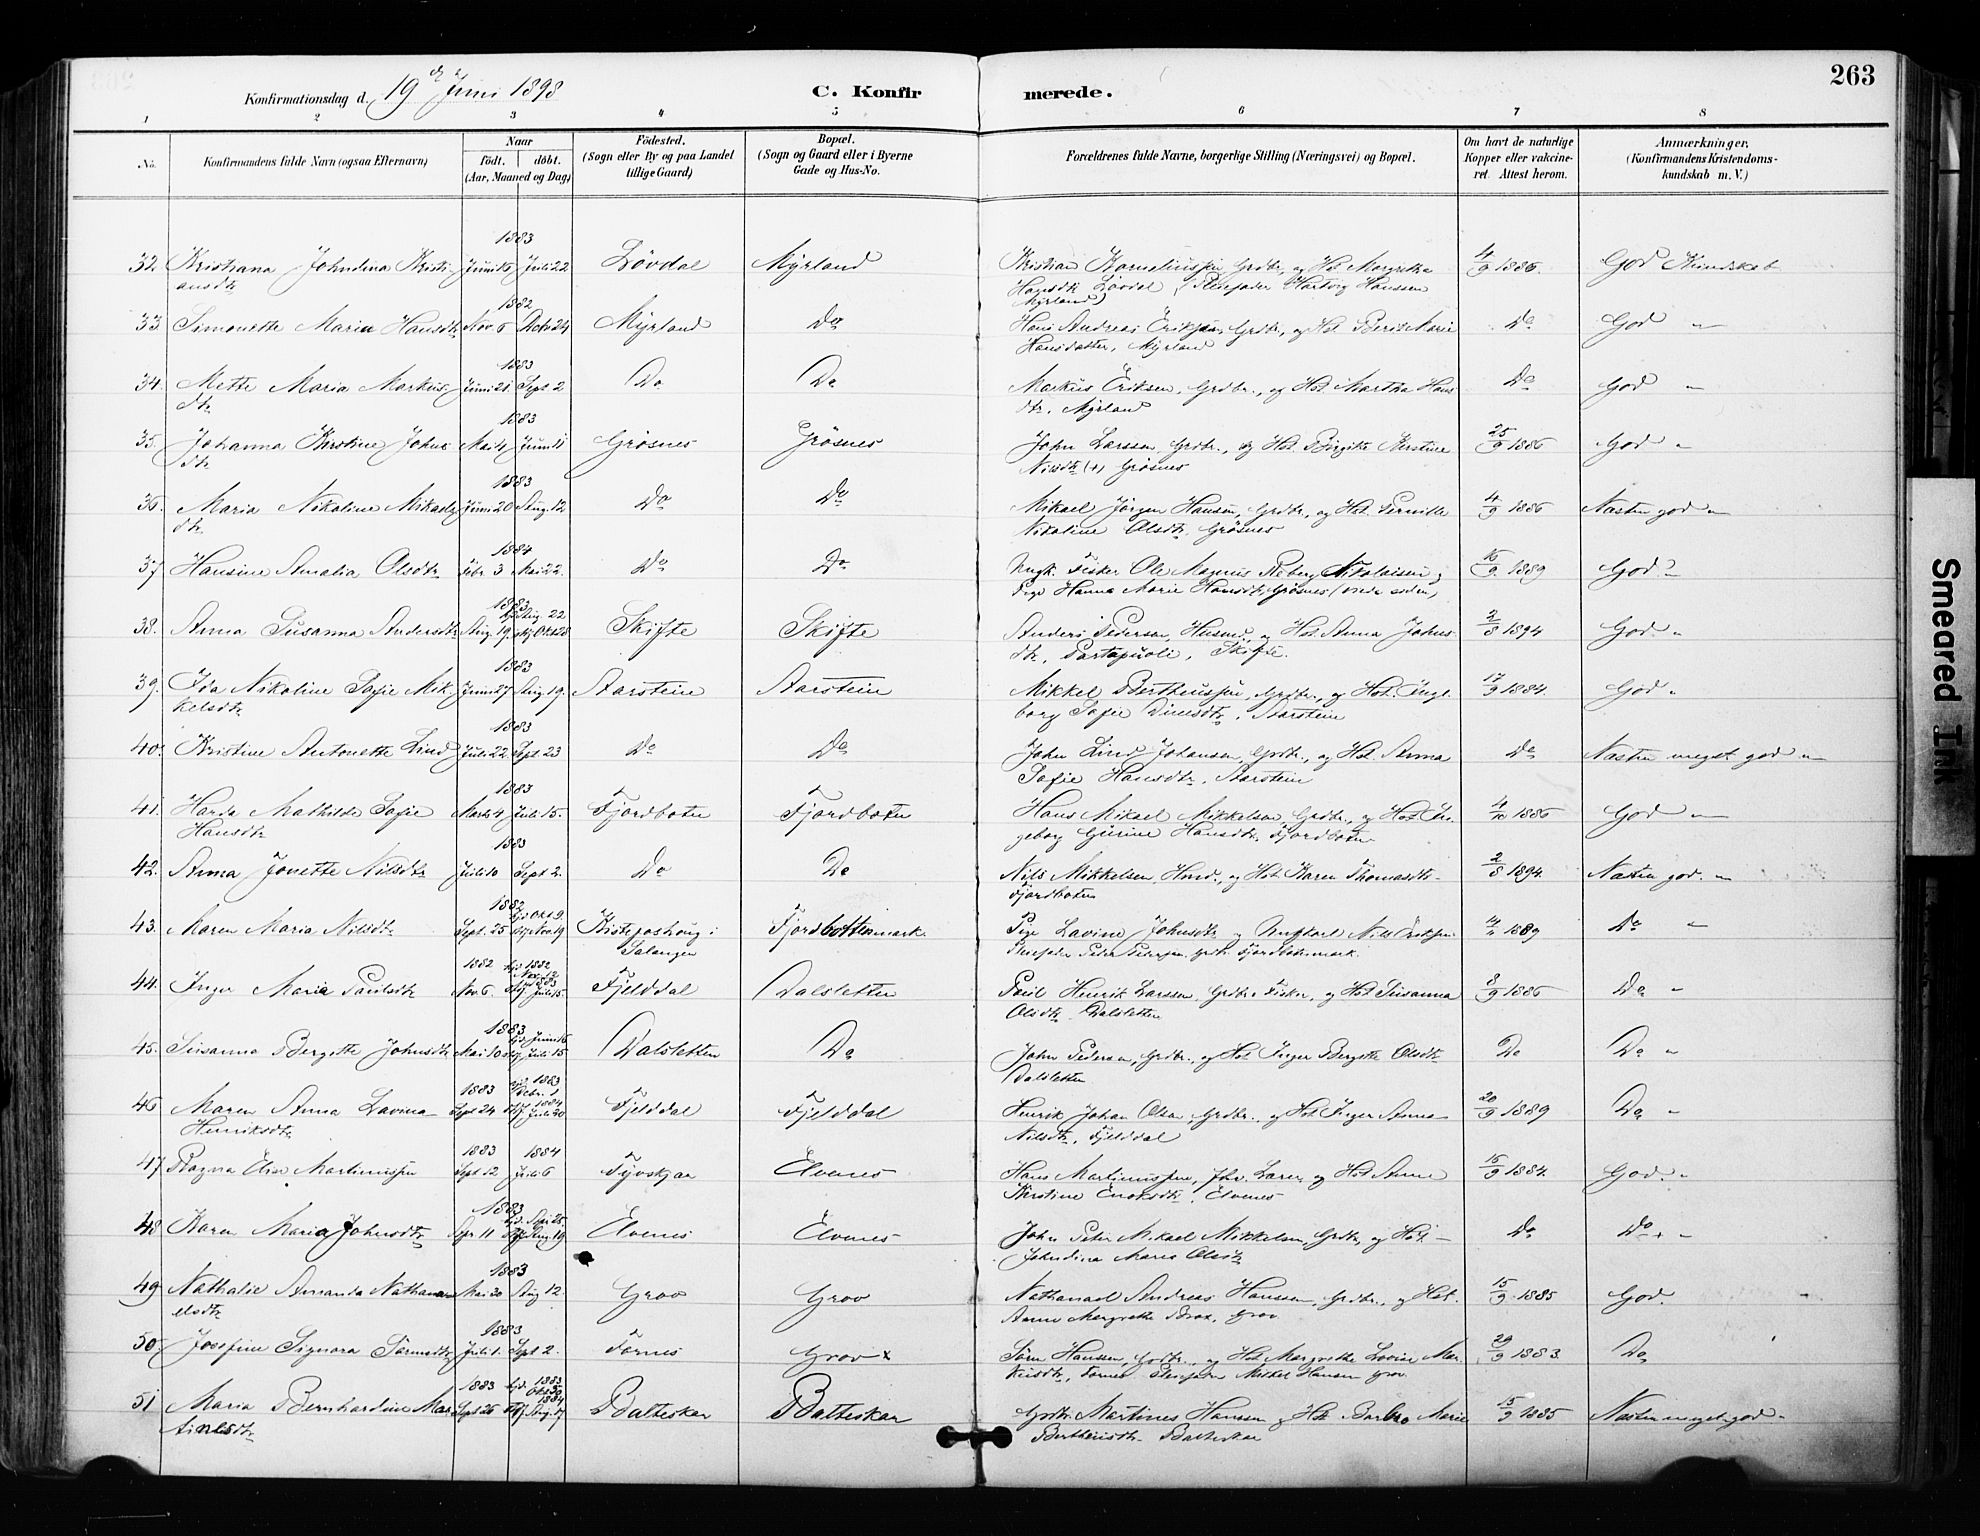 263
Konfirmationsdag d. 19de Juni 1898
C. Konfirmerede.
1 2 3 4 5 6 7 8
No. Konfirmandens fulde Navn (ogsaa Efternavn) Naar født. døbt. (Aar, Maaned og Dag) Fødested. (Sogn eller By og paa Landet tillige Gaard) Bopæl. (Sogn og Gaard eller i Byerne Gade og Hus-No. Forældrenes fulde Navne, borgerlige Stilling (Næringsvei) og Bopæl. Om havt de naturlige Kopper eller vakcineret. Attest herom. Anmærkninger, (Konfirmandens Kristendomskundskab m. V.)
1883
32. Kristiana Johndina Kristi- Juni Juli 22 Løvdal Myrland Kristian Korneliussen, Grdbr., og Hst. Margretha 4/9 1886. God Kundskab
ansdtr Hansdtr Løvdal (Pleiefader Hartvig Hanssen
Myrland)
1882
33. Simonette Maria Hansdtr Nov. 6 Decbr 24 Myrland Do Hans Andreas Eriksen, Grdbr., og Hst. Berit Marie Do God "
Hansdatter, Myrland
1883
34. Mette Maria Markus- Juni 21 Sept 2 Do Do Markus Eriksen, Grdbr., og Hst. Martha Hans Do God "
dtr dtr, Myrland
1883
35. Johanna Kirstine Johns Mai 4 Juni 11 Grøsnes Grøsnes John Larssen, Grdbr., og Hst. Birgitte Kirstine 25/9 1886 God "
dtr Nilsdtr (+) Grøsnes
1883
36. Maria Nikoline Mikaels Juni 20 Aug. 12 Do Do Mikael Jørgen Hansen, Grdbr., og Hst. Pernille 4/9 1886 Næsten god "
dtr Nikoline Olsdtr Grøsnes
1884
37 Hansine Amalia Olsdtr Febr 3 Mai 22. Do Do Ungk. Fisker Ole Magnus Nikolaisen, 16/9 1889 God "
Pige Hanna Marie Hansdtr, Grøsnes
1883 Aug 22
38. Anna Susanna Andersdtr Aug. 19 Okt 28 Skifte Skifte Anders Pedersen, Husmd., og Hst. Anna Johns- 2/8 1894 God "
dtr, Skifte.
1883
39. Ida Nikoline Sofie Mik Juni 27 Aug 19. Aarstein Aarstein Mikkel Bertheussen, Grdbr., og Hst. Inge 17/9 1884. God "
kelsdtr borg Sofie Aarstein
1883
40. Kristine Antonette Lind Juli 22 Sept 23 Do Do John Lind Johansen, Grdbr., og Hst. Anna Do Næsten meget god "
Sofie Hansdtr, Aarstein
1883
41. Harda Mathilde Sofie Marts 4 Juli 15. Fjordbotn Fjordbotn Hans Mikael Mikkelsen, Grdbr., og Hst. In- 1886 God "
Hansdtr geborg Hansdtr, Fjordbotn
1883
42. Anna Jonette Nilsdtr Juli 10 Sept 2. Do Do Nils Mikkelsen, Husmd., og Hst. Karen Thomasdtr 2/8 1894. Næsten god. "
Fjordbotn
1882 Okt 9.
43. Maren Maria Nilsdtr Sept. 25 Nov 19 i Fjordbottenmark. Pige Lavine Johnsdtr og Ungkarl Nils Eriksen 1889 Do "
Salangen Pleiefader Peder Pedersen, Grdbr Fjordbotnmark.
1882 1882 Nov. 12
44. Inger Maria Paulsdtr Nov. 6. Juli 15. Fjelddal Dalsletten Paul Henrik Larssen, Grdbr. Fisker, og Hst. Susanna 8/9 1886 Do "
Olsdtr Dalsletten
1883 Juni 16
45. Susanna Bergitte Johnsdtr Mai 10 Juli 15 Dalsletten Do John Pedersen, Grdbr., og Hst. Inger Bergitte Olsdtr Do Do "
Dalsletten
1883 1883 Decbr. 1 1884
46 Maren Anna Lavina Sept 24 Juli 20 Fjelddal Fjelddal Henrik Johan Olsen, Grdbr., og Hst. Inger Anna 20/9 1889 Do "
Henriksdtr Nilsdtr, Fjelddal
1883 1884
47 Ragna Elise Martinussen Sept 12 Juli 6 Elvenes Hans Martinussen, Lærer, og Hst. Anne 15/9 1884. God. "
Kirstine Enoksdtr, Elvenes
1883
48 Karen Maria Johnsdtr Apr 11 Aug 19 Elvenes Elvenes John Peter Mikael Mikkelsen, Grdbr, og Hst. Do Do "
Johndina Maria Olsdtr
1883
49 Nathalie Amanda Nathana- Mai 30 Aug 12. Grov Grov Nathanael Andreas Hanssen, Grdbr., og Hst. 15/9 1885 God.
elsdtr Anne Margrethe Brox, Grov
1883
50. Josefine Signora Sørensdtr Juli 1. Sept 2. Fornes Grov x Søren Hanssen, Grdbr., og Hst. Margrethe Lovise Mar- 29/9 1883. Do
kusdtr, Fornes Pleiefader Mikkel Hansen Grov
1883 1883 Okt 30 1884
51 Maria Bernhardine Mar Sept 26 Aug. 17 Balteskar Balteskar Grdbr. Martines Hanssen og Hst Barbro Marie 15/9 1885 Næsten meget god "
tinesdtr Bertheusdtr Balteskar
Smeared Ink